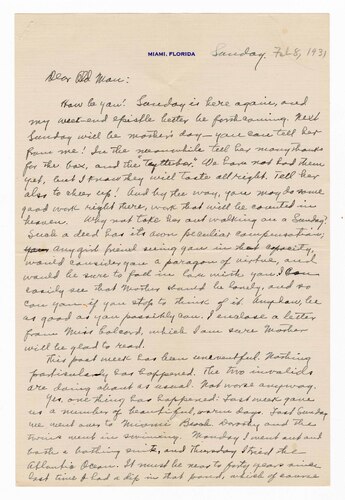 MIAMI, FLORIDA
Sunday, Feb 8, 1931
Dear Old Man:
How be you! Sunday is here again, and
my week-end epistle better be forthcoming. Next
Sunday will be mother's day — you can tell her
from me! In the meanwhile tell her many thanks
for the box, and the We have not had them
yet, but I know they will taste all right. Tell her
also to cheer up! And by the way, you may do some
good work right there, work that will be counted in
heaven. Why not take her out walking on a Sunday?
Such a deed has its own peculiar compensation;
any girl friend seeing you in that capacity,
would consider you a paragon of virtue, and
would be sure to fall in love with you. I can
easily see that Mother should be lonely, and so
can you if you stop to think of it. Anyhow, be
as good as you possibly can. I enclose a letter
from Miss Colcord, which I am sure Mother
will be glad to read.
This past week has been uneventful. Nothing
particularly has happened. The two invalids
are doing about as usual. Not worse anyway.
Yes, one thing has happened: Last week gave
us a number of beautiful, warm days. Last Sunday
we went over to Miami Beach. Dorothy and the
twins went in swimming. Monday I went out and
both a bathing suite, and Thursday I tried the
Atlantic Ocean. It must be near to forty years since
last time I had a dip in that pond, which of course